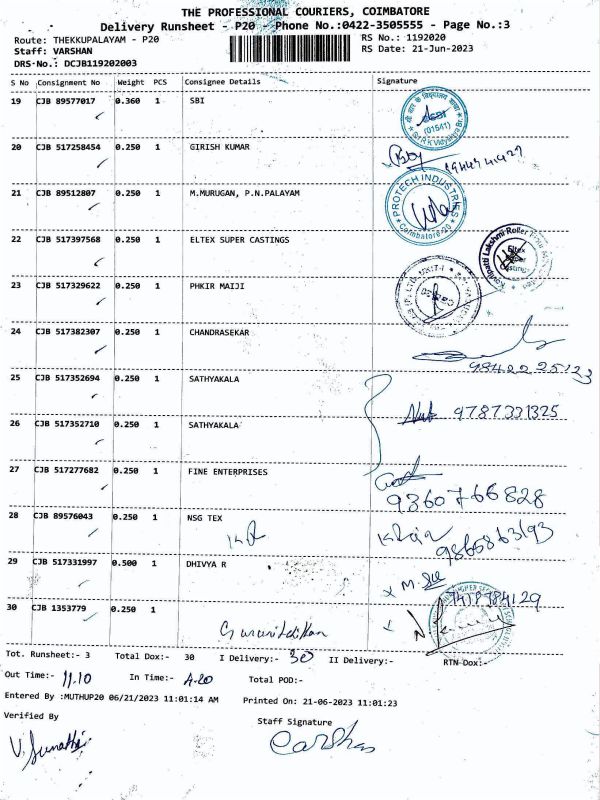 THE PROFESSIONAL COURIERS, COIMBATORE
Delivery Runsheet - P20 - Phone No.:0422-3505555 - Page No.:3
Route: THEKKUPALAYAM - P20 RS No.: 1192020
Staff: VARSHAN RS Date: 21-Jun-2023
DRS-No.: DCJB119202003
S No Consignment No Weight PCS Consignee Details Signature
19 CJB 89577017 0.360 1 SBI
(01541)
20 CJB 517258454 0.250 1 GIRISH KUMAR
21 CJB 89512807 0.250 1 M.MURUGAN, P.N.PALAYAM
PROTECH INDUSTRIES Coimbatore-20
22 CJB 517397568 0.250 1 ELTEX SUPER CASTINGS
Eltex Super Castings
23 CJB 517329622 0.250 1 PHKIR MAIJI
24 CJB 517382307 0.250 1 CHANDRASEKAR
98422 25123
25 CJB 517352694 0.250 1 SATHYAKALA
9787331325
26 CJB 517352710 0.250 1 SATHYAKALA
27 CJB 517277682 0.250 1 FINE ENTERPRISES
9360766828
28 CJB 89576043 0.250 1 NSG TEX
9865863193
29 CJB 517331997 0.500 1 DHIVYA R
30 CJB 1353779 0.250 1
Tot. Runsheet:- 3 Total Dox:- 30 I Delivery:- 30 II Delivery:- RTN Dox:-
Out Time:- 11.10 In Time:- 4.20 Total POD:-
Entered By :MUTHUP20 06/21/2023 11:01:14 AM Printed On: 21-06-2023 11:01:23
Verified By Staff Signature